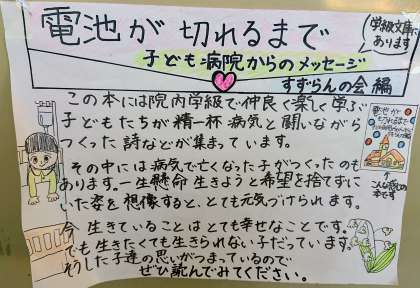 電池が切れるまで
学級文庫に
あります
子ども病院からのメッセージ
すずらんの会 編
この本には院内学級で仲良く楽しく学ぶ
子どもたちが精一杯 病気と闘いながら
つくった詩などが集まっています。
その中には病気で亡くなった子がつくったのも
あります。一生懸命 生きようと希望を捨てずに
いた姿を想像すると、とても元気づけられます。
今 生きていることはとても幸せなことです。
でも生きたくても生きられない子だっています。
そうした子達の思いがつまっているので
ぜひ読んでみてください。
電池が
切れるまで
こんな感じの
本です